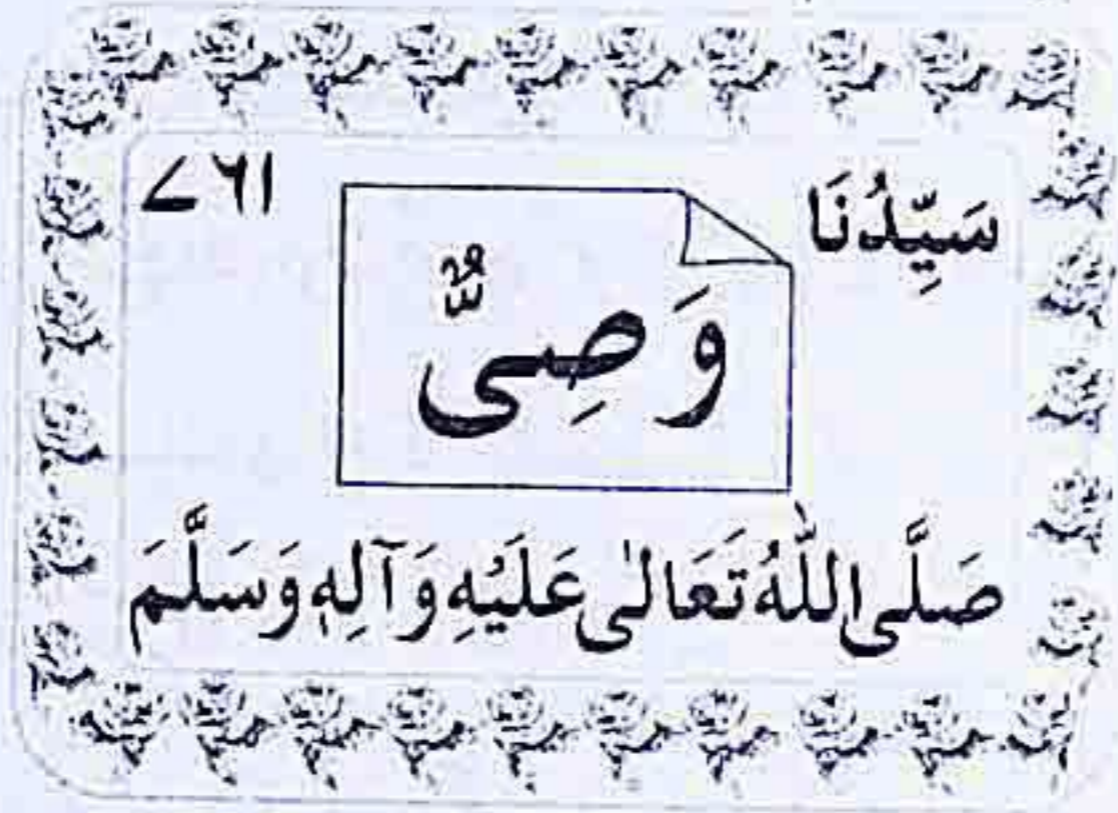 سَيِّدُنَا
۷۶۱
وَصِیٌّ
صَلَّى اللّٰهُ تَعَالٰى عَلَيْهِ وَآلِهٖ وَسَلَّمَ